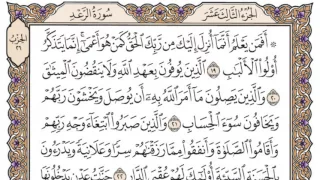 الجزء الثالث عشر
سورة الرعد
الحزب
٢٦
۞ أَفَمَن يَعْلَمُ أَنَّمَآ أُنزِلَ إِلَيْكَ مِن رَّبِّكَ ٱلْحَقُّ كَمَنْ هُوَ أَعْمَىٰٓ إِنَّمَا يَتَذَكَّرُ
أُو۟لُوا۟ ٱلْأَلْبَٰبِ ١٩ ٱلَّذِينَ يُوفُونَ بِعَهْدِ ٱللَّهِ وَلَا يَنقُضُونَ ٱلْمِيثَٰقَ
٢٠ وَٱلَّذِينَ يَصِلُونَ مَآ أَمَرَ ٱللَّهُ بِهِۦٓ أَن يُوصَلَ وَيَخْشَوْنَ رَبَّهُمْ
وَيَخَافُونَ سُوٓءَ ٱلْحِسَابِ ٢١ وَٱلَّذِينَ صَبَرُوا۟ ٱبْتِغَآءَ وَجْهِ رَبِّهِمْ
وَأَقَامُوا۟ ٱلصَّلَوٰةَ وَأَنفَقُوا۟ مِمَّا رَزَقْنَٰهُمْ سِرًّا وَعَلَانِيَةً وَيَدْرَءُونَ
بِٱلْحَسَنَةِ ٱلسَّيِّئَةَ أُو۟لَٰٓئِكَ لَهُمْ عُقْبَى ٱلدَّارِ ٢٢ جَنَّٰتُ عَدْنٍ يَدْخُلُونَهَا